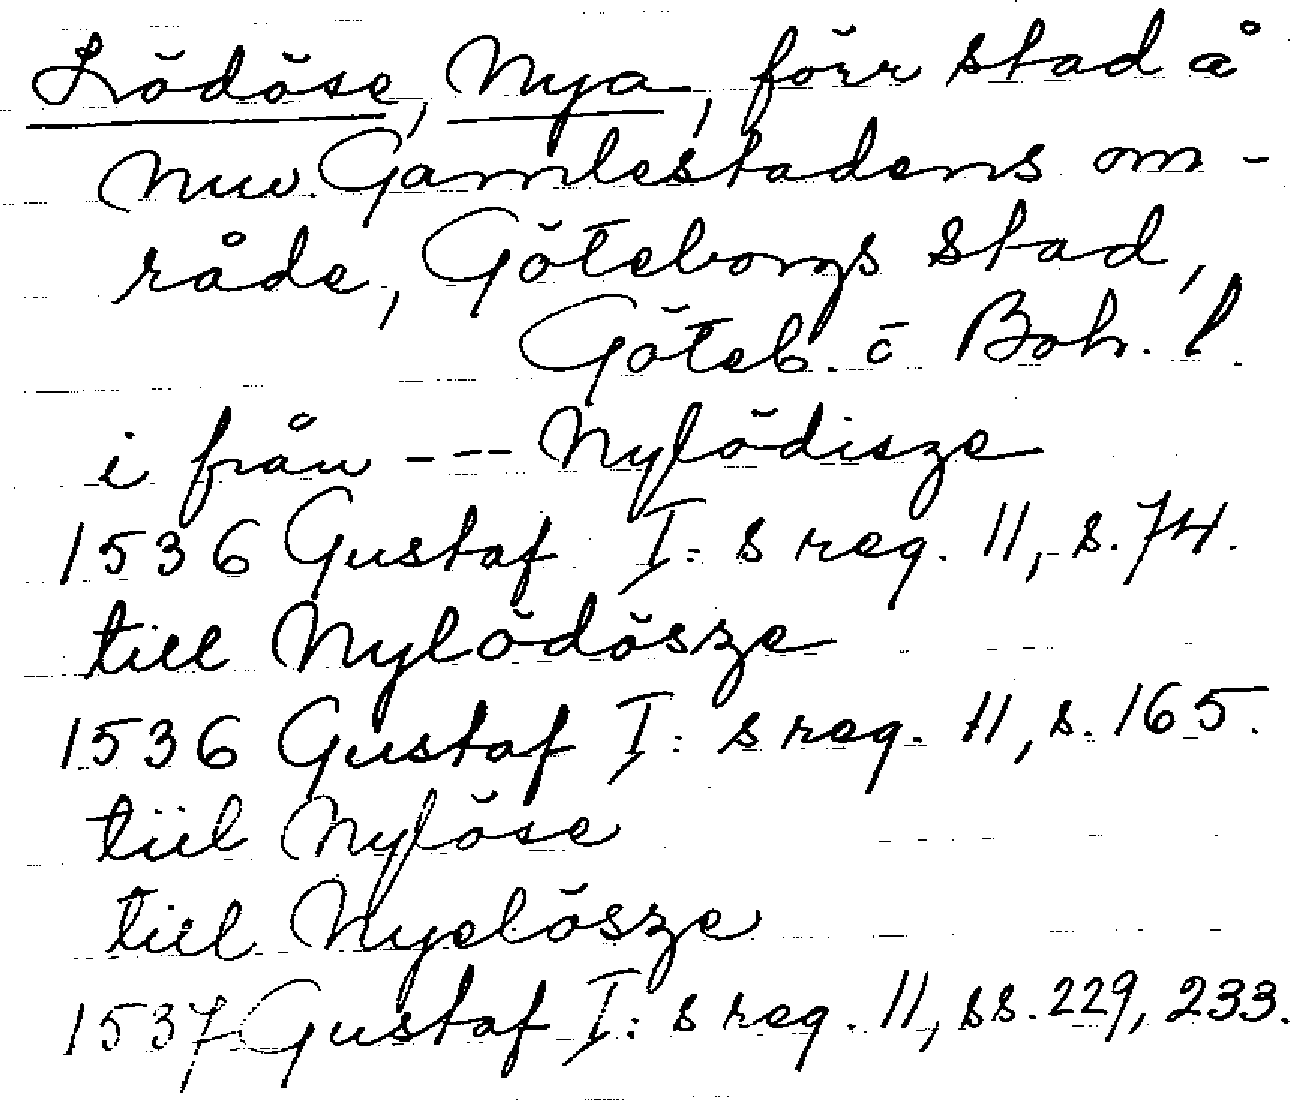 Lödöse, Nya, förr stad å
nuv. Gamlestadens om-
råde, Göteborgs stad,
Göteb. o Boh. l.
i från --- Nylödisze
1536 Gustaf I:s reg. 11, s. 74.
till Nylödösze
1536 Gustaf I:s reg. 11, s. 165.
tiil Nylöse
tiil Nyelösze
1537 Gustaf I:s reg. 11, ss. 229, 233.